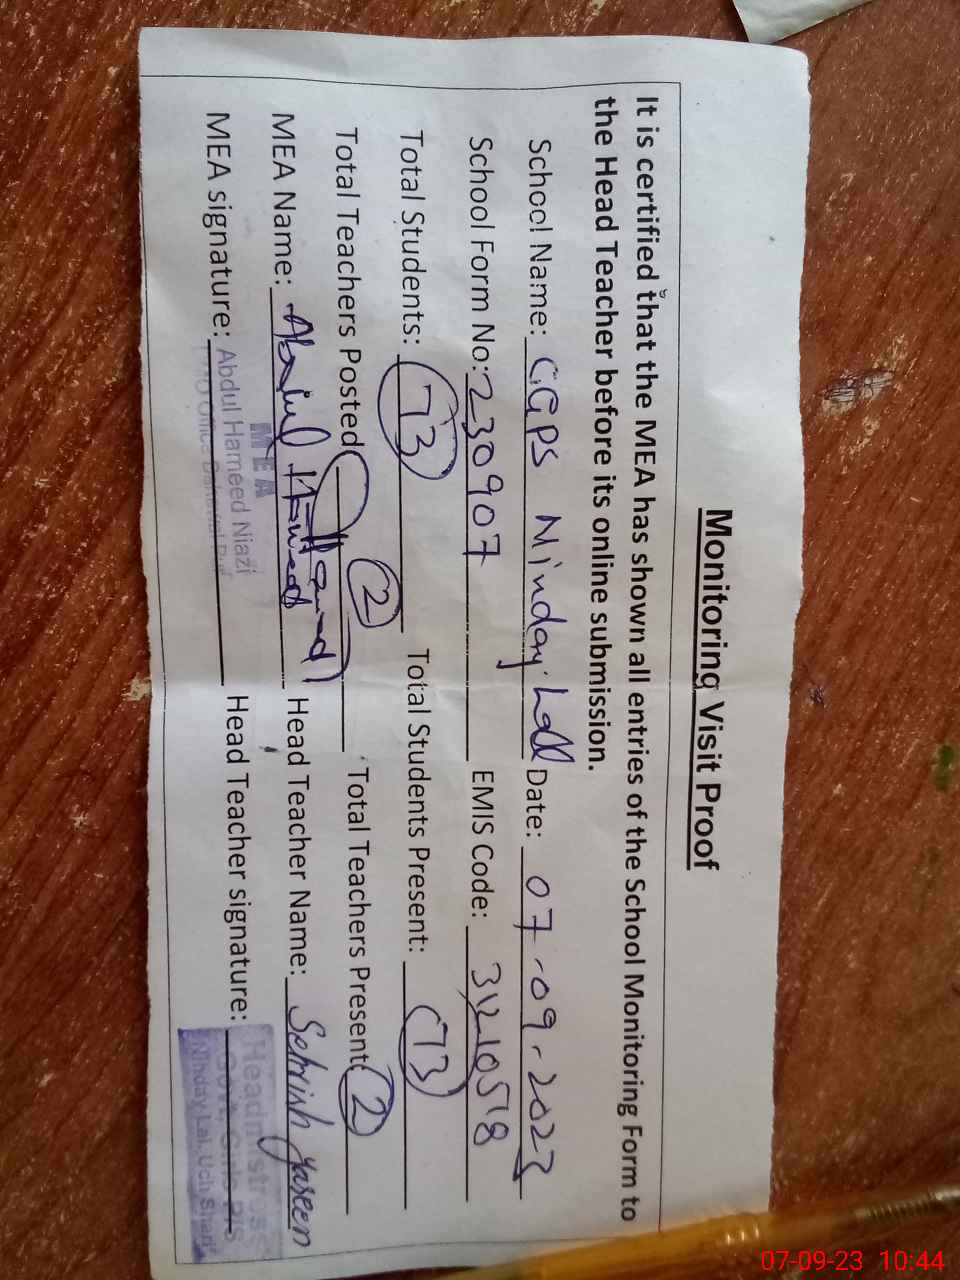 Monitoring Visit Proof
It is certified that the MEA has shown all entries of the School Monitoring Form to
the Head Teacher before its online submission.
School Name: GGPS Minday Lall Date: 07-09-2023
School Form No: 230907 EMIS Code: 31210518
Total Students: 73 Total Students Present: 73
Total Teachers Posted 2 Total Teachers Present 2
MEA Name: Abdul Hameed Head Teacher Name: Sehrish yaseen
MEA signature: Head Teacher signature:
MEA
Abdul Hameed Niazi
Headmistress
Ninday Lal, Uch Sharif
07-09-23 10:44